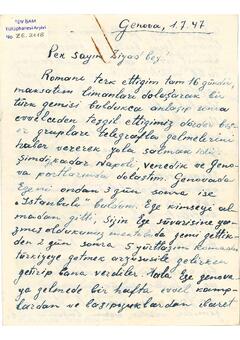 TDV İSAM
Kütüphanesi Arşivi
No ZE. 2118
Genova, 1.7.47
Pek sayın Ziyad bey!
Romanı terk ettiğim tam 16 gündür,
maksatım limanları dolaşarak bir
türk gemisi buldukca anlaşıp sonra
evvelceden tezgil ettiğimiz
grupları telegrafla gelmelerini
haber vererek yola salmak idi.
Şimdikadar Napoli, venedik ve Geno-
va portlarında dolastim. Genovada
Ege ni ondan 3 gün sonra ise
"Istanbulu" buldum. Ege kimseye al
madan gitti, Sizin Ege süvarisine ya-
zmış olduğunuz mektubda gemi gettik-
den 2 gün sonra 5 yurttaşım Romadan
türkiyeye getmek arzususile gelirken
getirip bana verdiler. Hala Ege Genova
ya gelmede bir hafta evvel kamp-
lardan ve